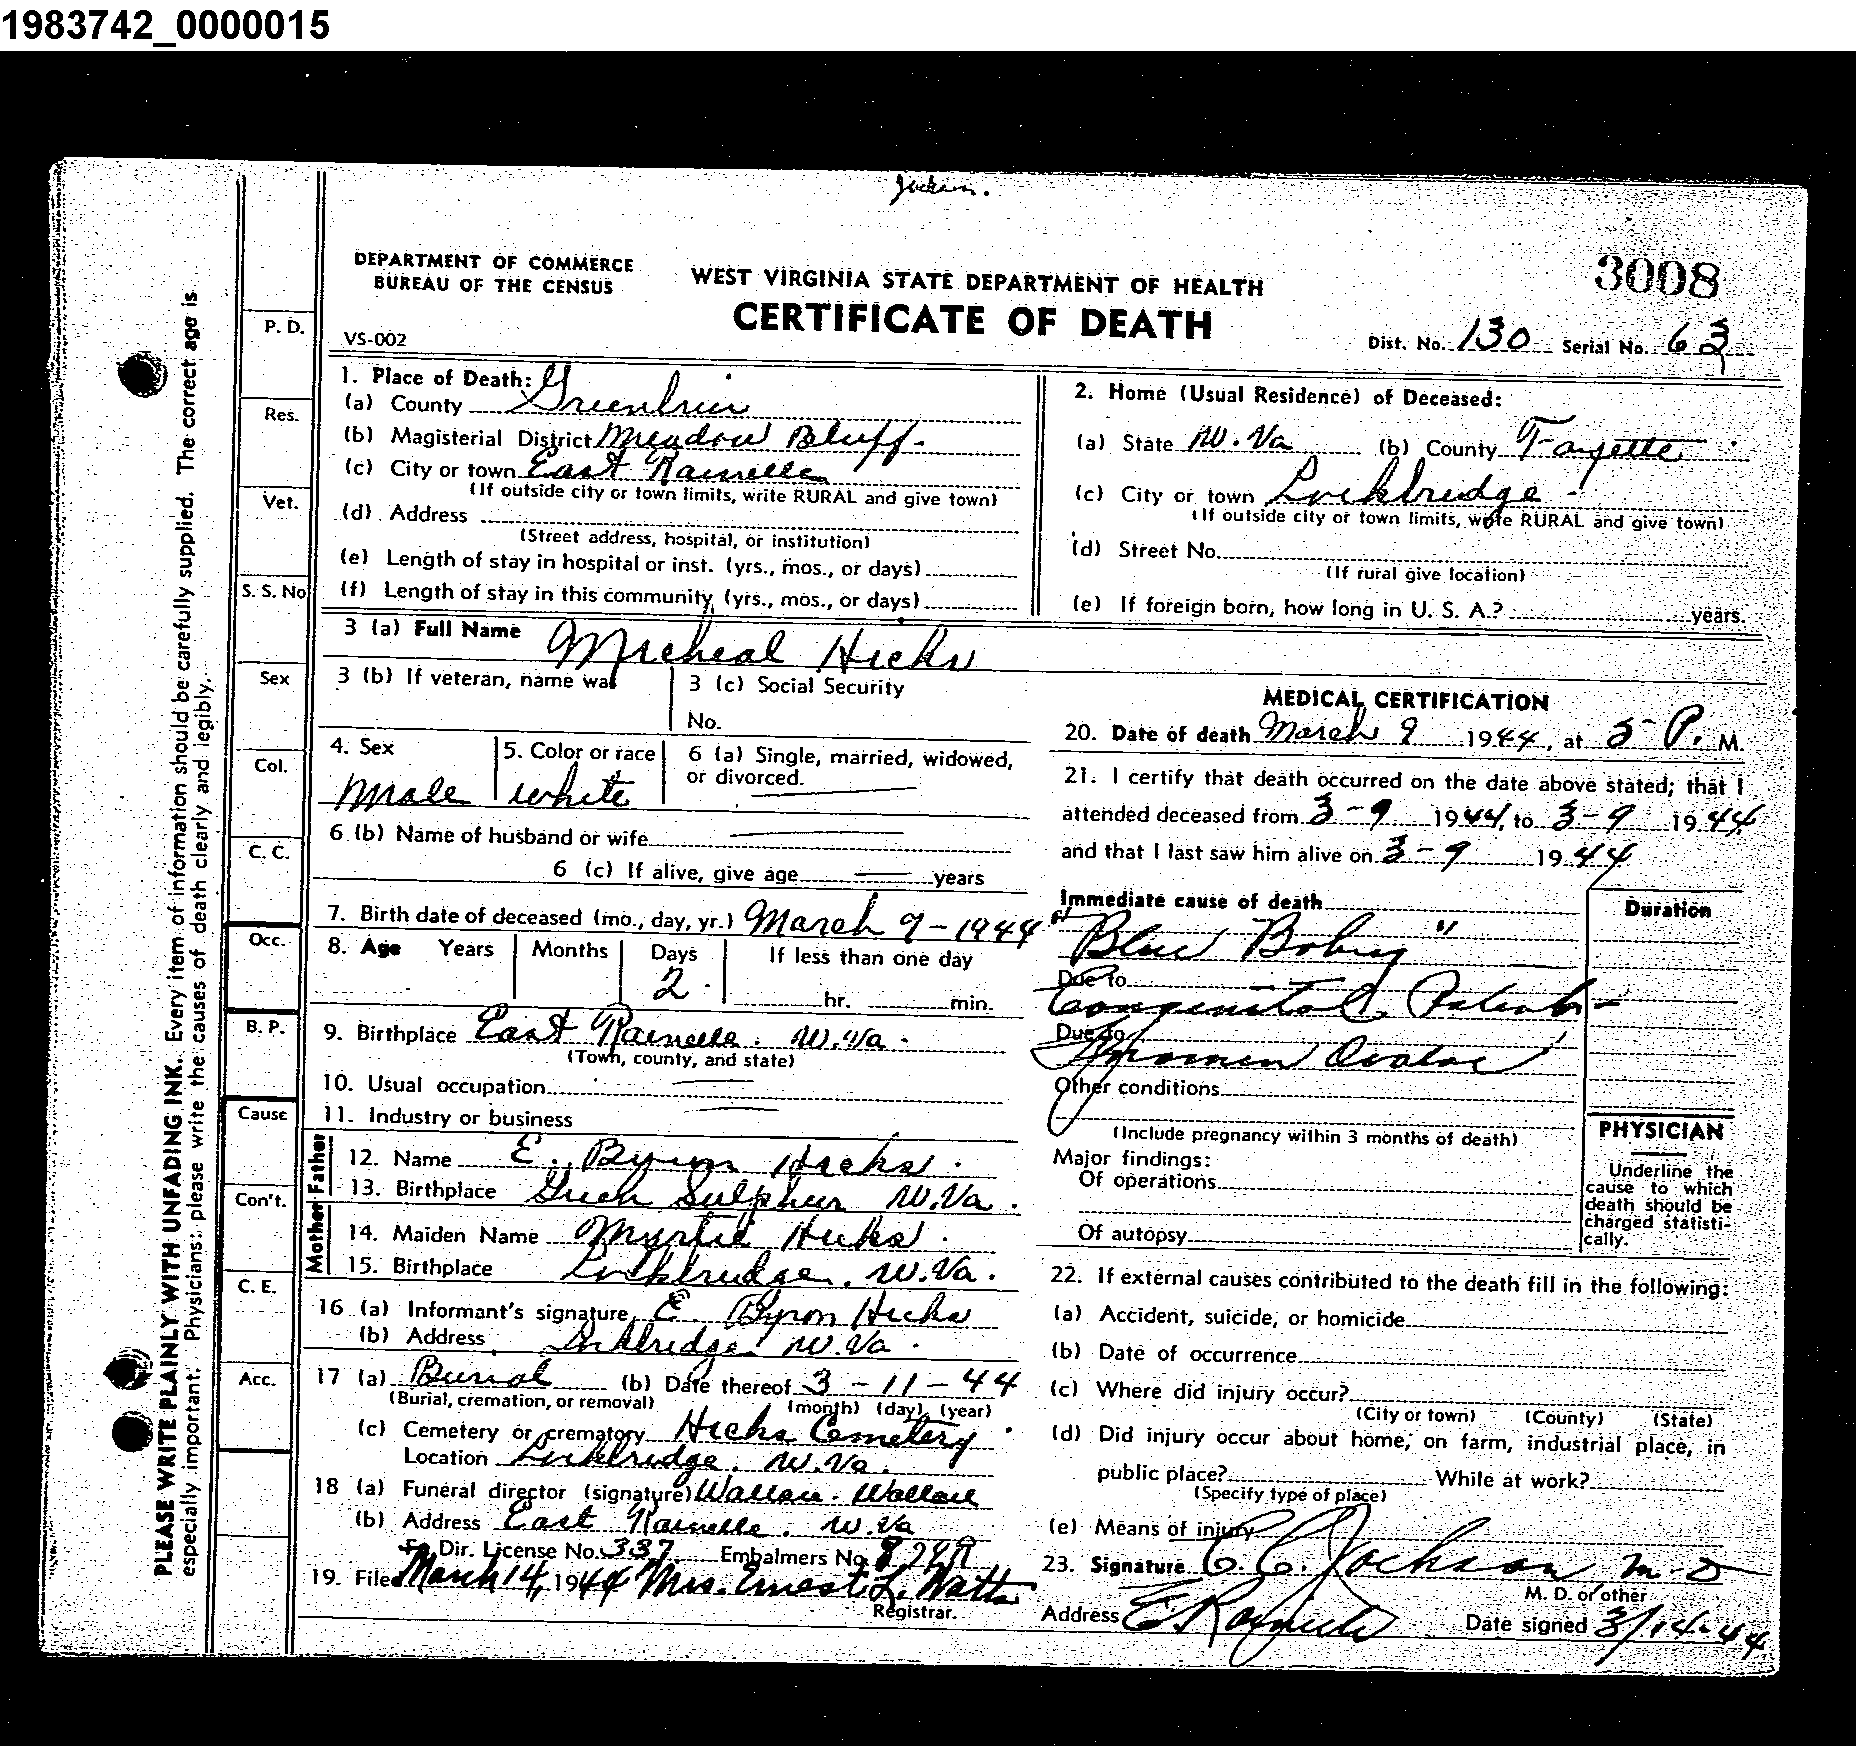 1983742_0000015
DEPARTMENT OF COMMERCE
BUREAU OF THE CENSUS
WEST VIRGINIA STATE DEPARTMENT OF HEALTH
3008
CERTIFICATE OF DEATH
VS-002
Dist. No. 130 Serial No. 63
PLEASE WRITE PLAINLY WITH UNFADING INK. Every item of information should be carefully supplied. The correct age is
especially important. Physicians: please write the causes of death clearly and legibly.
P. D.
Res.
Vet.
S. S. No
Sex
Col.
C. C.
Occ.
B. P.
Cause
Con't.
C. E.
Acc.
1. Place of Death:
(a) County Greenbrier
(b) Magisterial District Meadow Bluff
(c) City or town East Rainelle
(If outside city or town limits, write RURAL and give town)
(d) Address
(Street address, hospital, or institution)
(e) Length of stay in hospital or inst. (yrs., mos., or days)
(f) Length of stay in this community (yrs., mos., or days)
2. Home (Usual Residence) of Deceased:
(a) State W. Va (b) County Fayette
(c) City or town Lockbridge
(If outside city or town limits, wrote RURAL and give town)
(d) Street No.
(If rural give location)
(e) If foreign born, how long in U. S. A.? years.
3 (a) Full Name Micheal Hicks
3 (b) If veteran, name war
3 (c) Social Security
No.
4. Sex
Male
5. Color or race
white
6 (a) Single, married, widowed,
or divorced.
6 (b) Name of husband or wife
6 (c) If alive, give age years
7. Birth date of deceased (mo., day, yr.) March 9-1944
8. Age Years Months Days If less than one day
2 hr. min.
9. Birthplace East Rainelle. W. Va.
(Town, county, and state)
10. Usual occupation
11. Industry or business
Father
12. Name E. Byron Hicks.
13. Birthplace Green Sulphur W. Va.
Mother
14. Maiden Name Myrtie Hicks.
15. Birthplace Lockbridge. W. Va.
16 (a) Informant's signature E Byron Hicks
(b) Address Lockbridge W. Va.
17 (a) Burial (b) Date thereof 3-11-44
(Burial, cremation, or removal) (month) (day) (year)
(c) Cemetery or crematory Hicks Cemetery
Location Lockbridge. W. Va.
18 (a) Funeral director (signature) Wallace. Wallace
(b) Address East Rainelle. W. Va
Dir. License No. 337 Embalmers No.
19. Filed March 14, 1944 Mrs. Ernest L. Watts
Registrar.
MEDICAL CERTIFICATION
20. Date of death March 9 1944, at 5 P. M.
21. I certify that death occurred on the date above stated; that I
attended deceased from 3-9 1944, to 3-9 1944
and that I last saw him alive on 3-9 1944
Immediate cause of death
Duration
"Blue Baby"
Due to
Congenital Patent
Due to
Foramen Ovale
Other conditions
(Include pregnancy within 3 months of death)
Major findings:
Of operations
Of autopsy
PHYSICIAN
Underline the
cause to which
death should be
charged statisti-
cally.
22. If external causes contributed to the death fill in the following:
(a) Accident, suicide, or homicide
(b) Date of occurrence
(c) Where did injury occur?
(City or town) (County) (State)
(d) Did injury occur about home, on farm, industrial place, in
public place? While at work?
(Specify type of place)
(e) Means of injury
23. Signature C. C. Jackson M. D
M. D. or other
Address E Rainelle Date signed 3/14-44